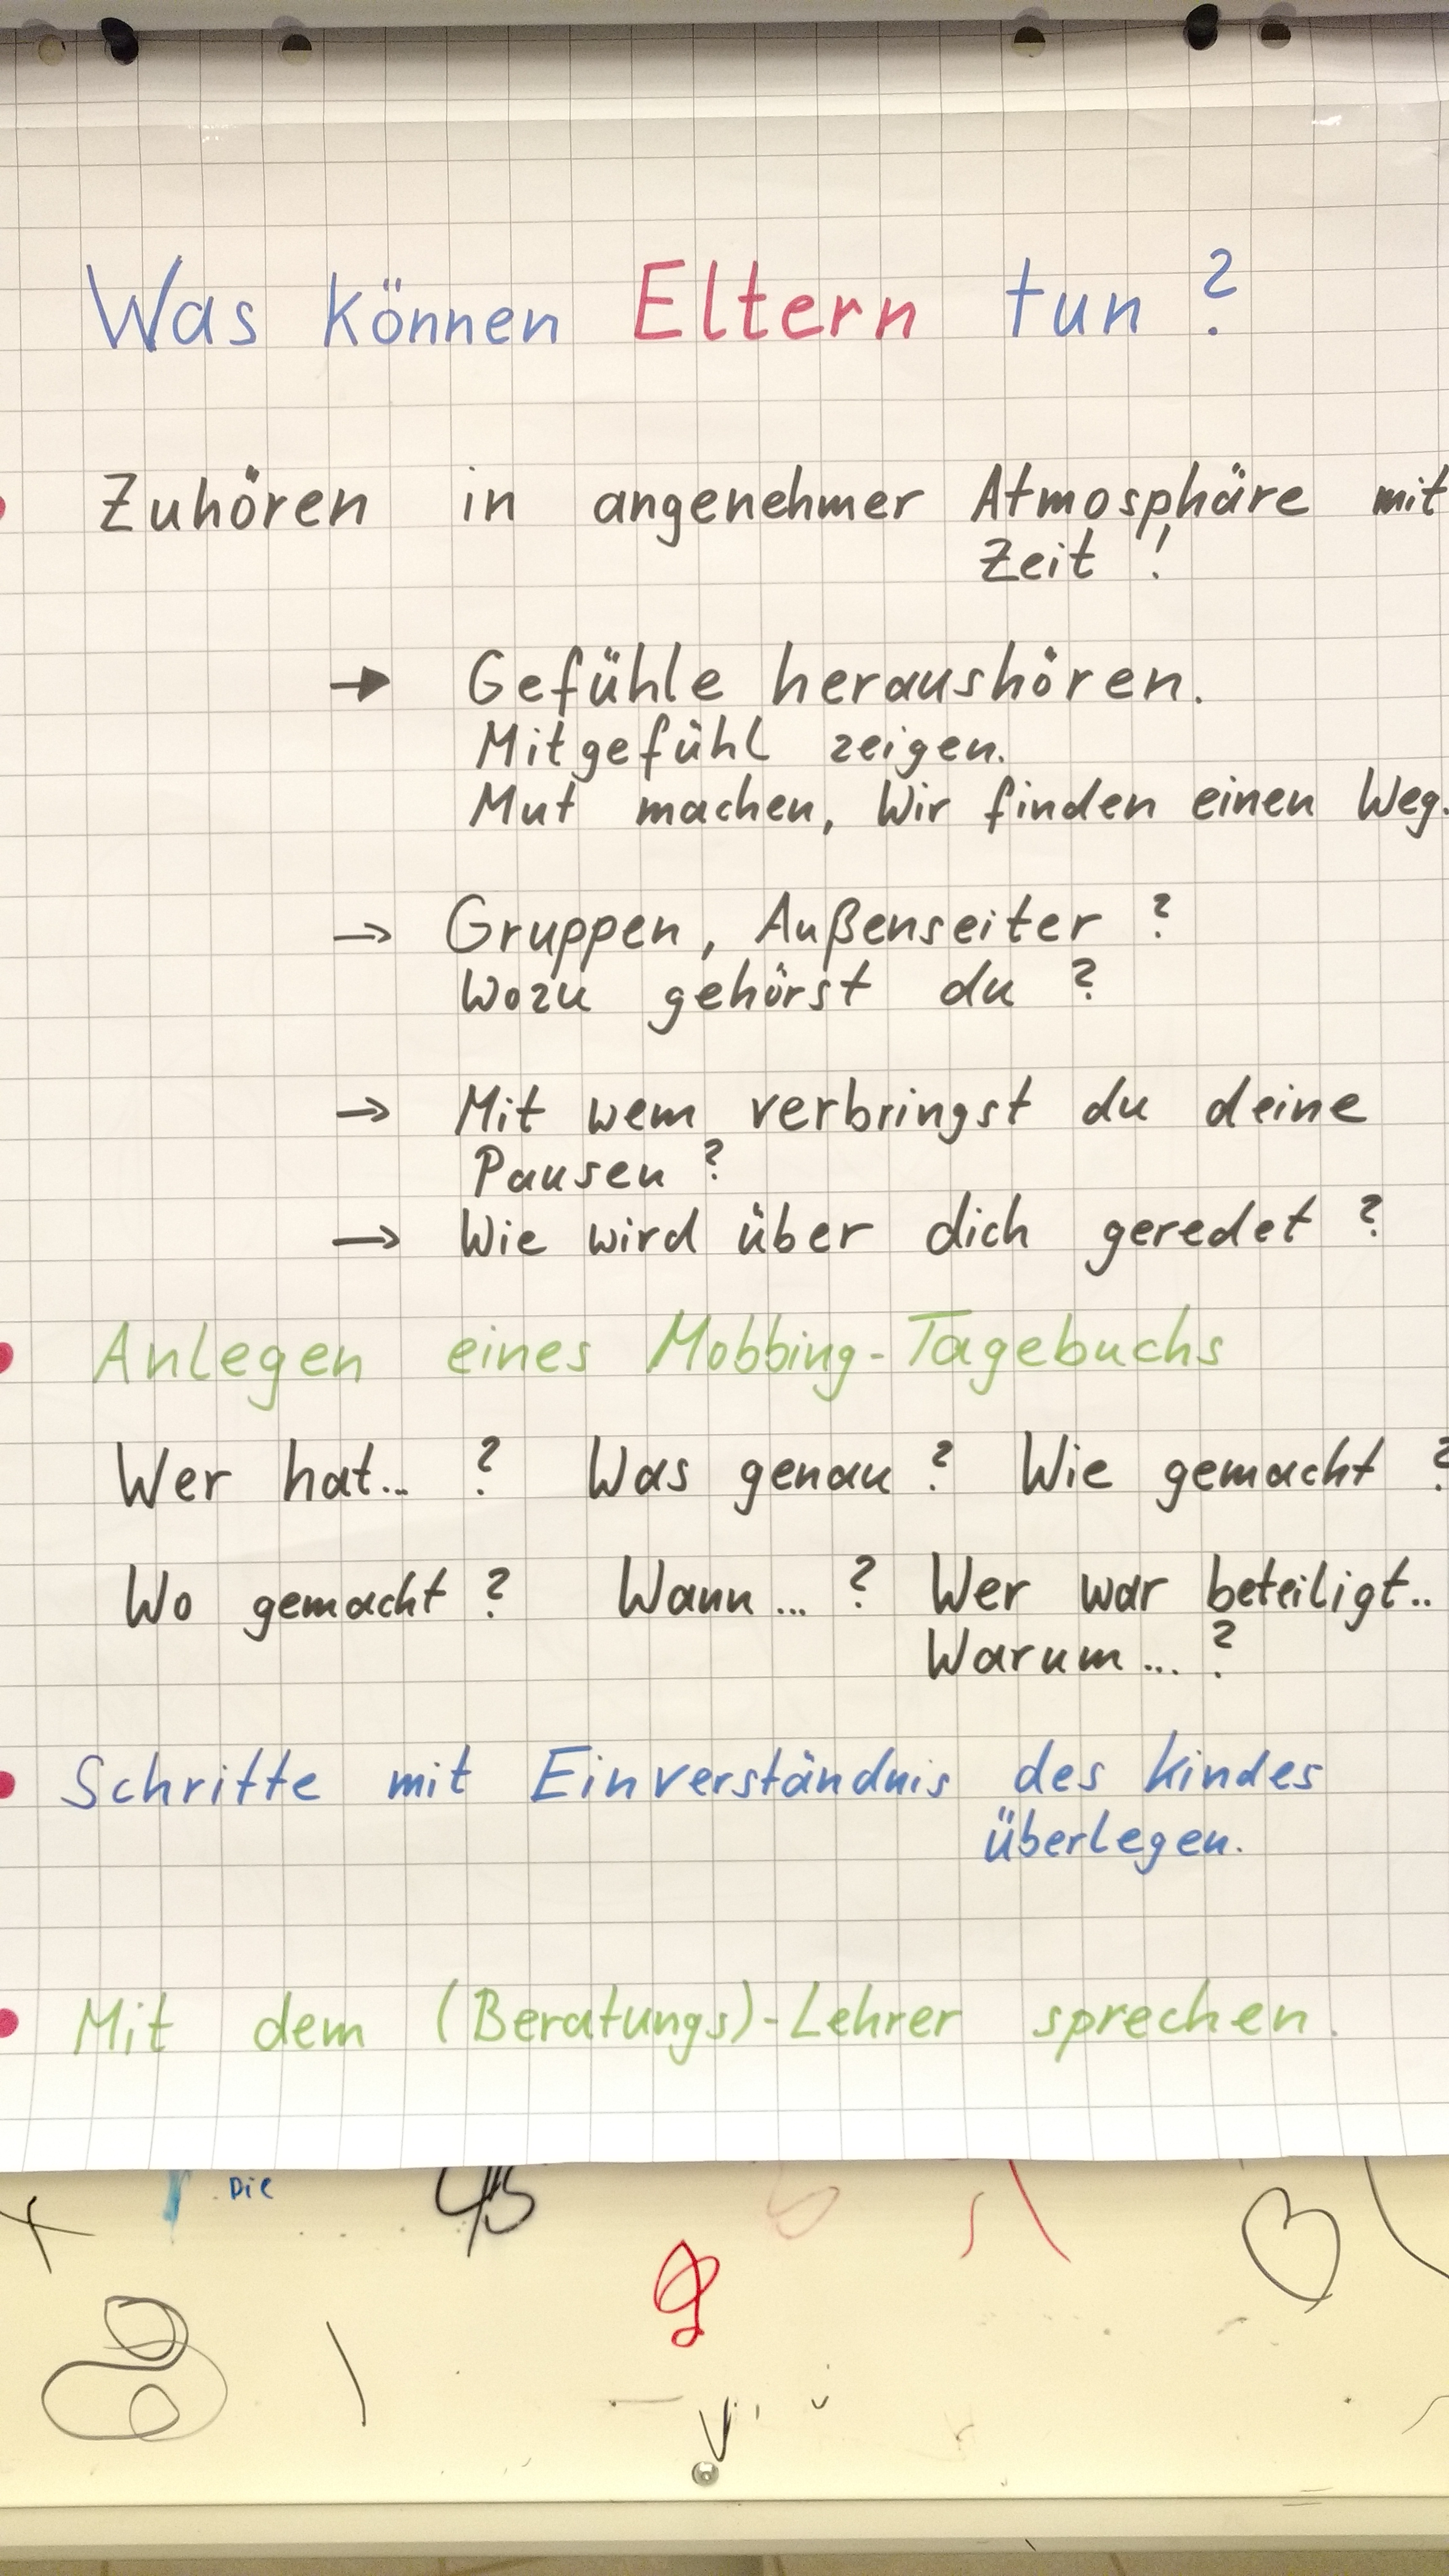 Was können Eltern tun?
Zuhören in angenehmer Atmosphäre mit
Zeit!
→ Gefühle heraushören.
Mitgefühl zeigen.
Mut machen, Wir finden einen Weg.
→ Gruppen, Außenseiter?
Wozu gehörst du?
→ Mit wem verbringst du deine
Pausen?
→ Wie wird über dich geredet?
Anlegen eines Mobbing-Tagebuchs
Wer hat... ? Was genau? Wie gemacht?
Wo gemacht? Wann... ? Wer war beteiligt..
Warum... ?
Schritte mit Einverständnis des Kindes
überlegen.
Mit dem (Beratungs)-Lehrer sprechen.
Die
45